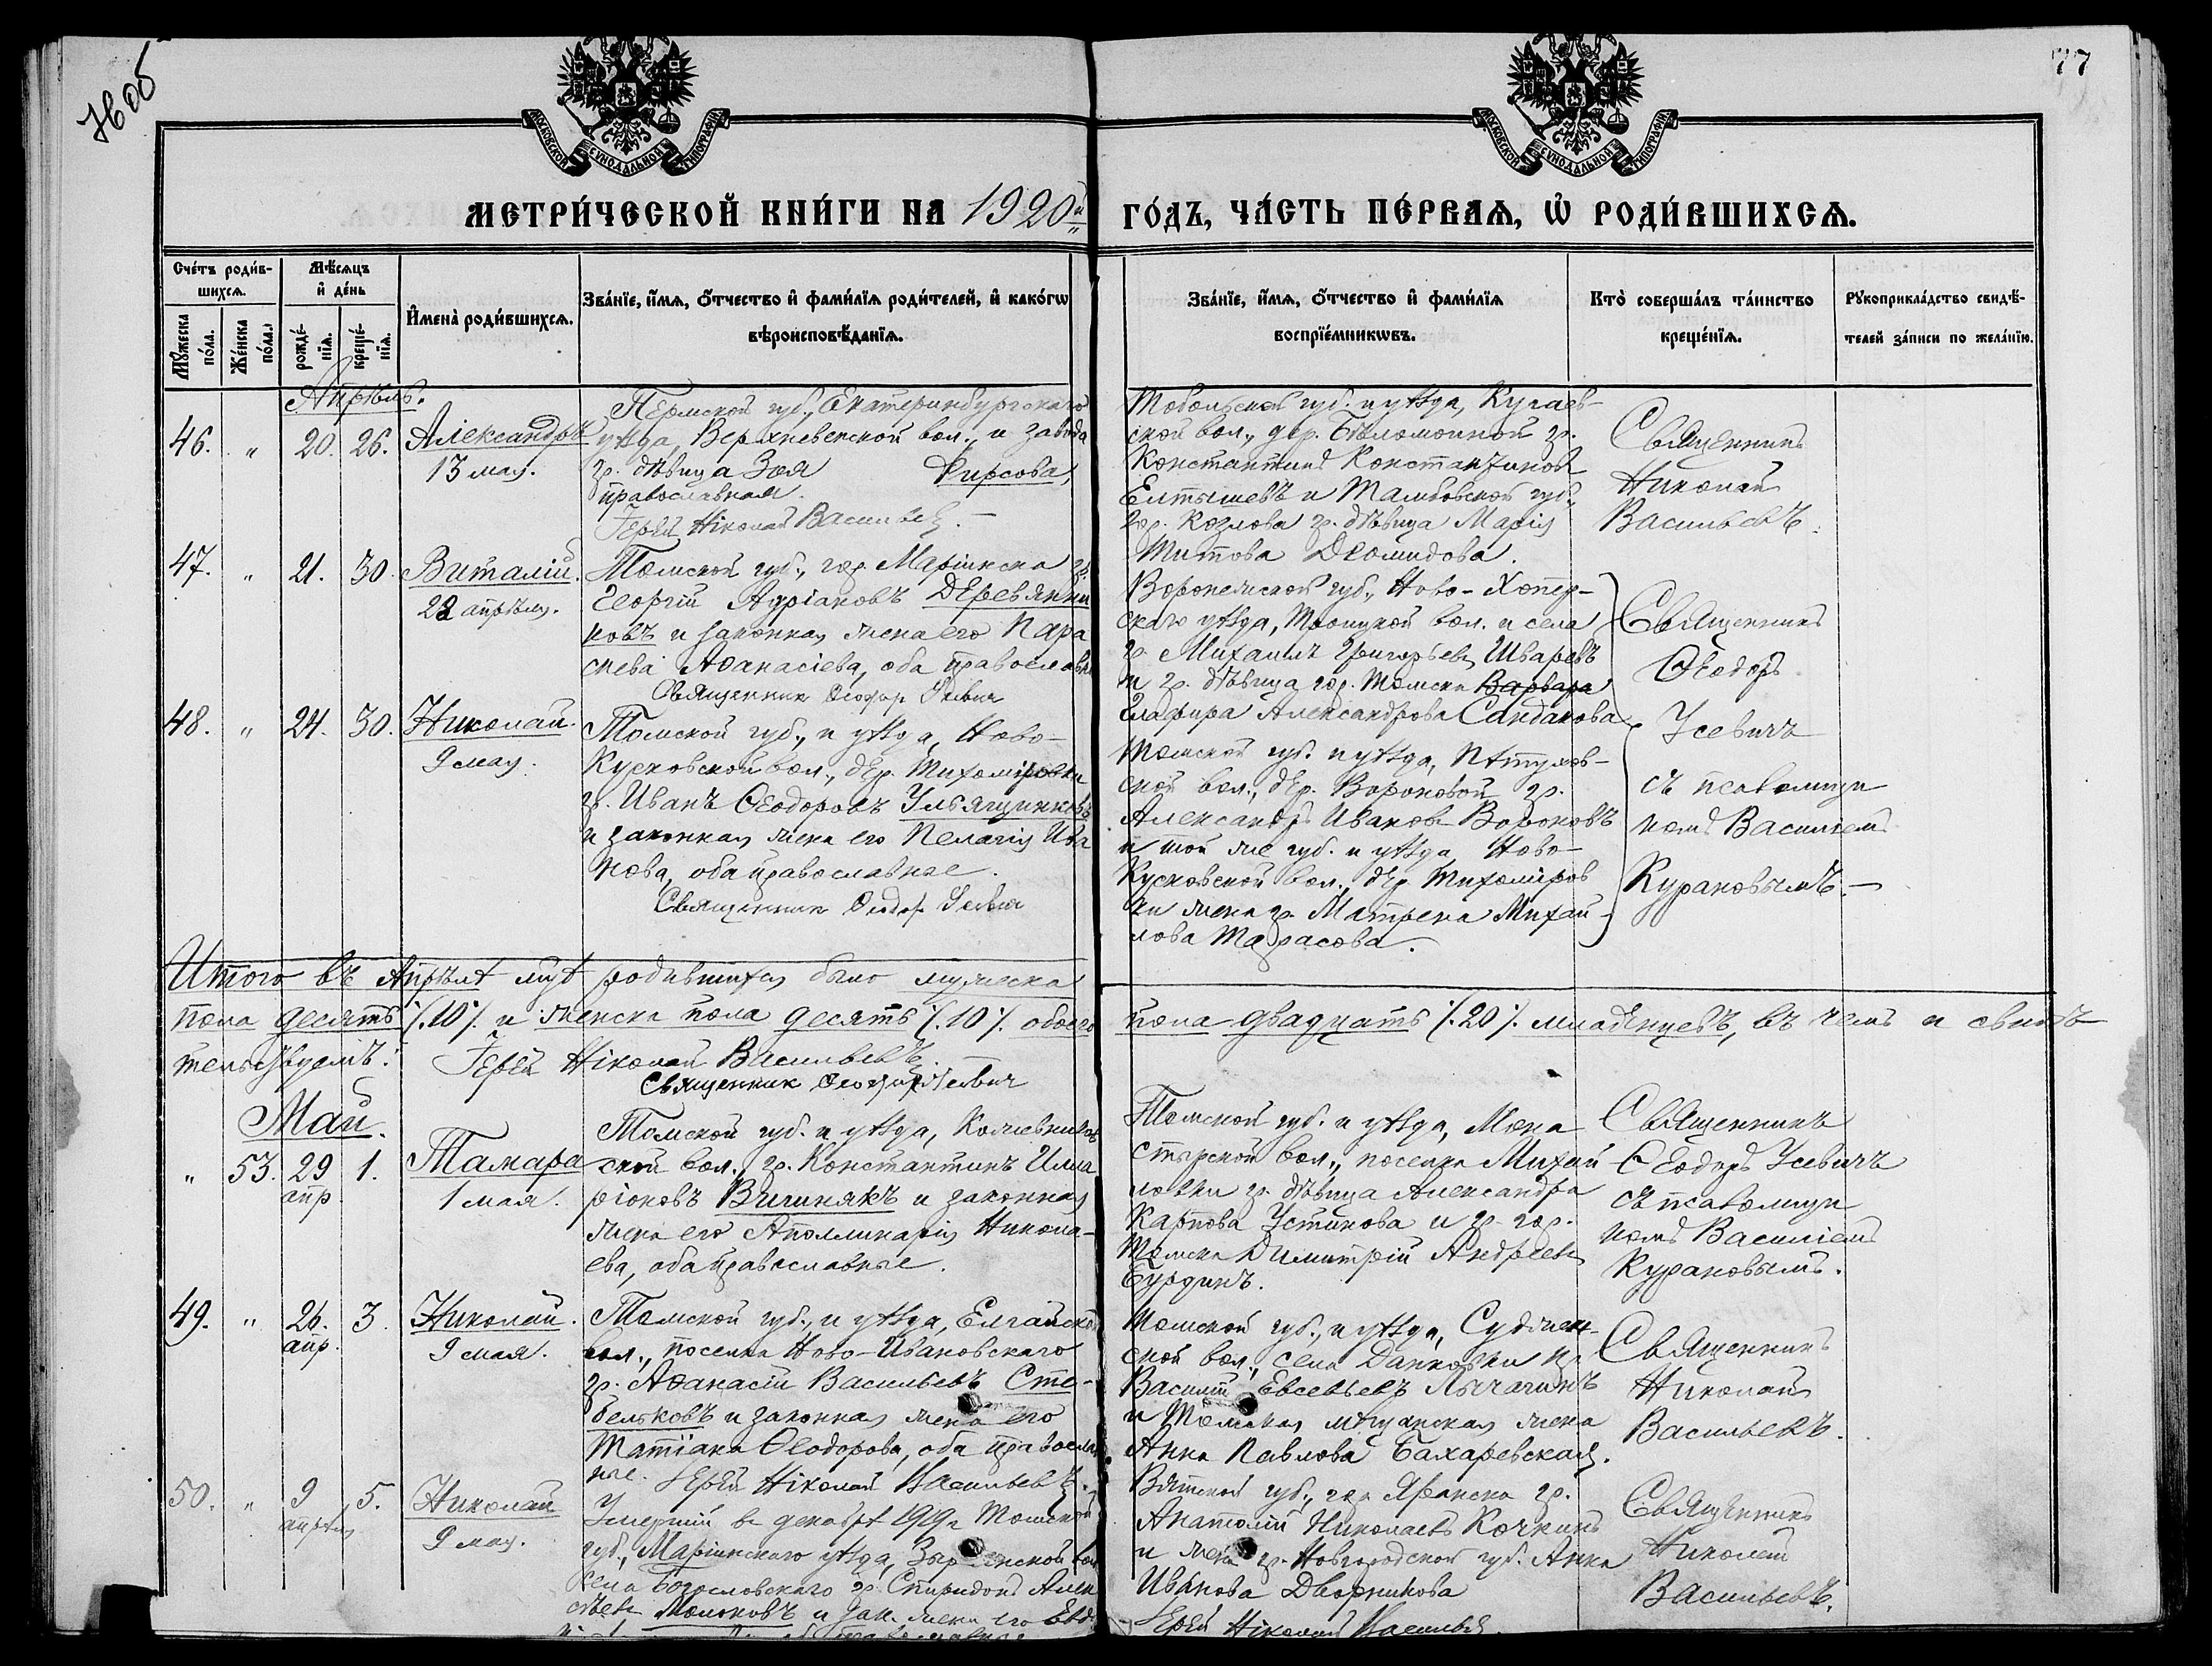 77
МОСКОВСКОЙ СѴНОДАЛЬНОЙ ТИПОГРАФІИ
МОСКОВСКОЙ СѴНОДАЛЬНОЙ ТИПОГРАФІИ
МЕТРИ́ЧЕСКОЙ КНИ́ГИ НА 1920й
ГО́ДЪ, ЧА́СТЬ ПЕ́РВАѦ, Ѡ҆ РОДИ́ВШИХСѦ.
Сче́тъ роди́в-
шихсѧ.
Мꙋ́жеска по́ла.
Же́нска по́ла.
Мѣ́сѧцъ
и҆ де́нь
рожде́-
нїѧ.
креще́-
нїѧ.
И҆мена̀ роди́вшихсѧ.
Зва́нїе, и҆́мѧ, ѻ҆́тчество и҆ фами́лїѧ роди́телей, и҆ како́гѡ
вѣроисповѣ́данїѧ.
Зва́нїе, и҆́мѧ, ѻ҆́тчество и҆ фами́лїѧ
воспрїе́мникѡвъ.
Кто̀ соверша́лъ та́инство
креще́нїѧ.
Рꙋкоприкла́дство свидѣ́-
телей за́писи по жела́нїю.
Апрѣль.
46. " 20. 26. Александръ
13 мая.
Пермской губ., Екатеринбургскаго
уѣзда, Верхневской вол., и завода
гр. дѣвица Зоя Фирсова,
православная.
Іерей Николай Васильевъ. —
Тобольской губ. и уѣзда, Кугаев-
ской вол., дер. Бѣломоиной гр.
Константинъ Константиновъ
Елтышевъ и Тамбовской губ.,
гор. Козлова гр. дѣвица Марія
Титова Діомидова.
Священникъ
Николай
Васильевъ.
47. " 21. 30. Виталій.
28 апрѣля.
Томской губ., гор. Маріинска гр.
Георгій Адріановъ Деревянни
ковъ и законная жена его Пара
скева Аѳанасіева, оба православн
Священник Ѳеодор Усевич
Воронежской губ., Ново-Хопер-
скаго уѣзда, Троицкой вол. и села
гр. Михаилъ Григорьевъ Шваревъ
и гр. дѣвица гор. Томска Варвара
Глафира Александрова Сандакова
Священникъ
Ѳеодоръ
Усевичъ
съ псаломщи
комъ Василіемъ
Курановымъ. —
48. " 24. 30. Николай.
9 мая.
Томской губ., и уѣзда, Ново-
Кусковской вол., дер. Тихоміровки
гр. Иванъ Ѳеодоровъ Ульященковъ
и законная жена его Пелагія Ива
нова, оба православные.
Священник Ѳеодор Усевич
Томской губ. и уѣзда, Пѣтухов-
ской вол., дер. Вороновой гр.
Александръ Ивановъ Вороновъ
и той же губ. и уѣзда, Ново-
Кусковской вол., дер. Тихоміров
ки жена гр. Матрена Михай-
лова Тарасова.
Итого въ Апрѣлѣ мцѣ родившихся было мужеска
пола десять /.10./ и женска пола десять /.10./ обоего
пола двадцать /.20./ младенцевъ, въ чемъ и свидѣ
тельствуемъ:
Іерей Николай Васильевъ.
Священник Ѳеодор Усевич
Май.
" 53. 29 1. Тамара
апр. 1 мая.
Томской губ. и уѣзда, Кожевников
ской вол., гр. Константинъ Илла
ріоновъ Вигинякъ и законная
жена его Аполлинарія Никола-
ева, оба православные.
Томской губ. и уѣзда, Мона
стырской вол., поселка Михай
ловки гр. дѣвица Александра
Карпова Устинова и гр. гор.
Томска Димитрій Андреевъ
Бурдинъ.
Священникъ
Ѳеодоръ Усевичъ
съ псаломщи
комъ Василіемъ
Курановымъ.
49. " 26. 3. Николай.
апр. 9 мая.
Томской губ., и уѣзда, Елгайской
вол., поселка Ново-Ивановскаго
гр. Аѳанасій Васильевъ Сте-
бельковъ и законная жена его
Татіана Ѳеодорова, оба православ
ные. Іерей Николай Васильевъ.
Томской губ., и уѣзда, Суджен-
ской вол., села Данковки гр.
Василій Евсевьевъ Лычагинъ
и Томская мѣщанская жена
Анна Павлова Бахаревская.
Священникъ
Николай
Васильевъ.
50. " 9 5. Николай
апрѣля 9 мая.
Умершій въ декабрѣ 1919 г. Томской
губ., Маріинскаго уѣзда, вол
села Богословскаго гр. Спиридонъ Алек
сѣевъ Молоковъ и зак. жена его Евд
Вятской губ., гор. Яранска гр.
Анатолій Николаевъ Кочкинъ
и жена гр. Новгородской губ. Анна
Иванова Дворникова
Іерей Николай Васильевъ.
Священникъ
Николай
Васильевъ.